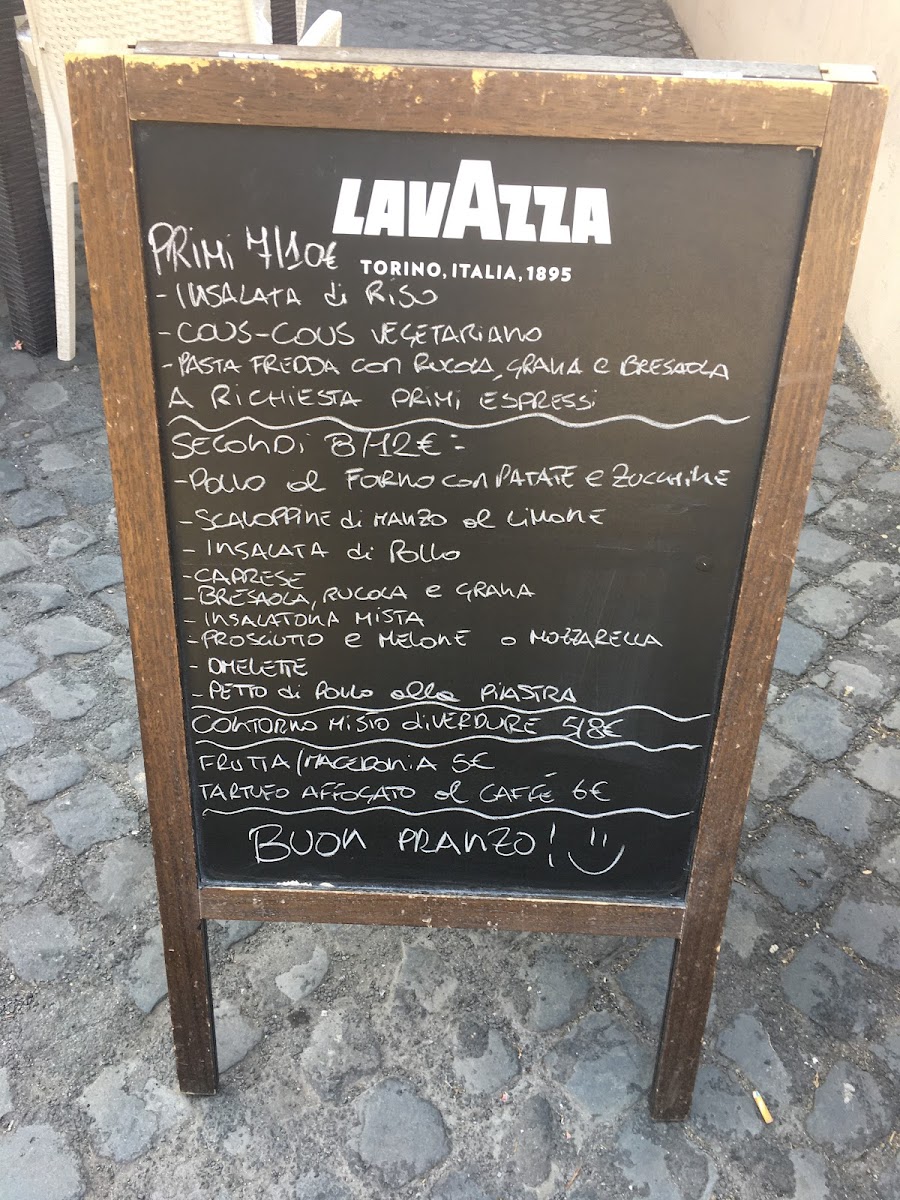 LAVAZZA
TORINO, ITALIA, 1895
PRIMI 7/10€
- INSALATA di RISO
- COUS-COUS VEGETARIANO
- PASTA FREDDA con RUCOLA, GRANA e BRESAOLA
A RICHIESTA PRIMI ESPRESSI
SECONDI 8/12€:
- POLLO al FORNO con PATATE e ZUCCHINE
- SCALOPPINE di MANZO al LIMONE
- INSALATA di POLLO
- CAPRESE
- BRESAOLA, RUCOLA e GRANA
- INSALATONA MISTA
- PROSCIUTTO e MELONE o MOZZARELLA
- OMELETTE
- PETTO di POLLO alla PIASTRA
CONTORNO MISTO di VERDURE 5/8€
FRUTTA/MACEDONIA 5€
TARTUFO AFFOGATO al CAFFÈ 6€
BUON PRANZO!